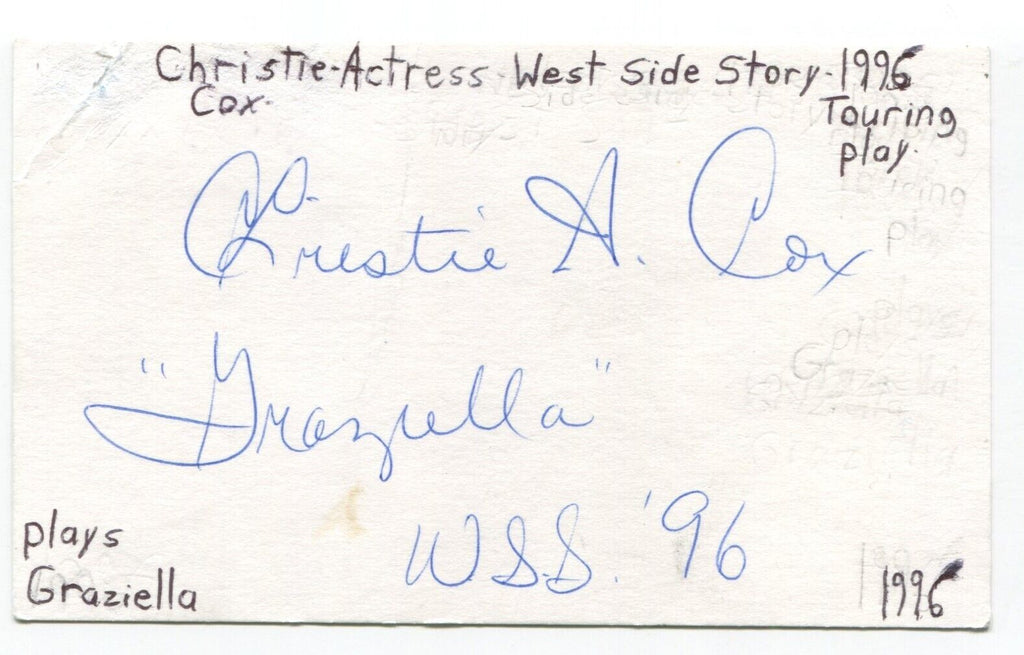 Christie-Actress-West Side Story-1996
Cox-
Touring
play-
Christie A. Cox
"Graziella"
W.S.S. '96
plays
Graziella
1996